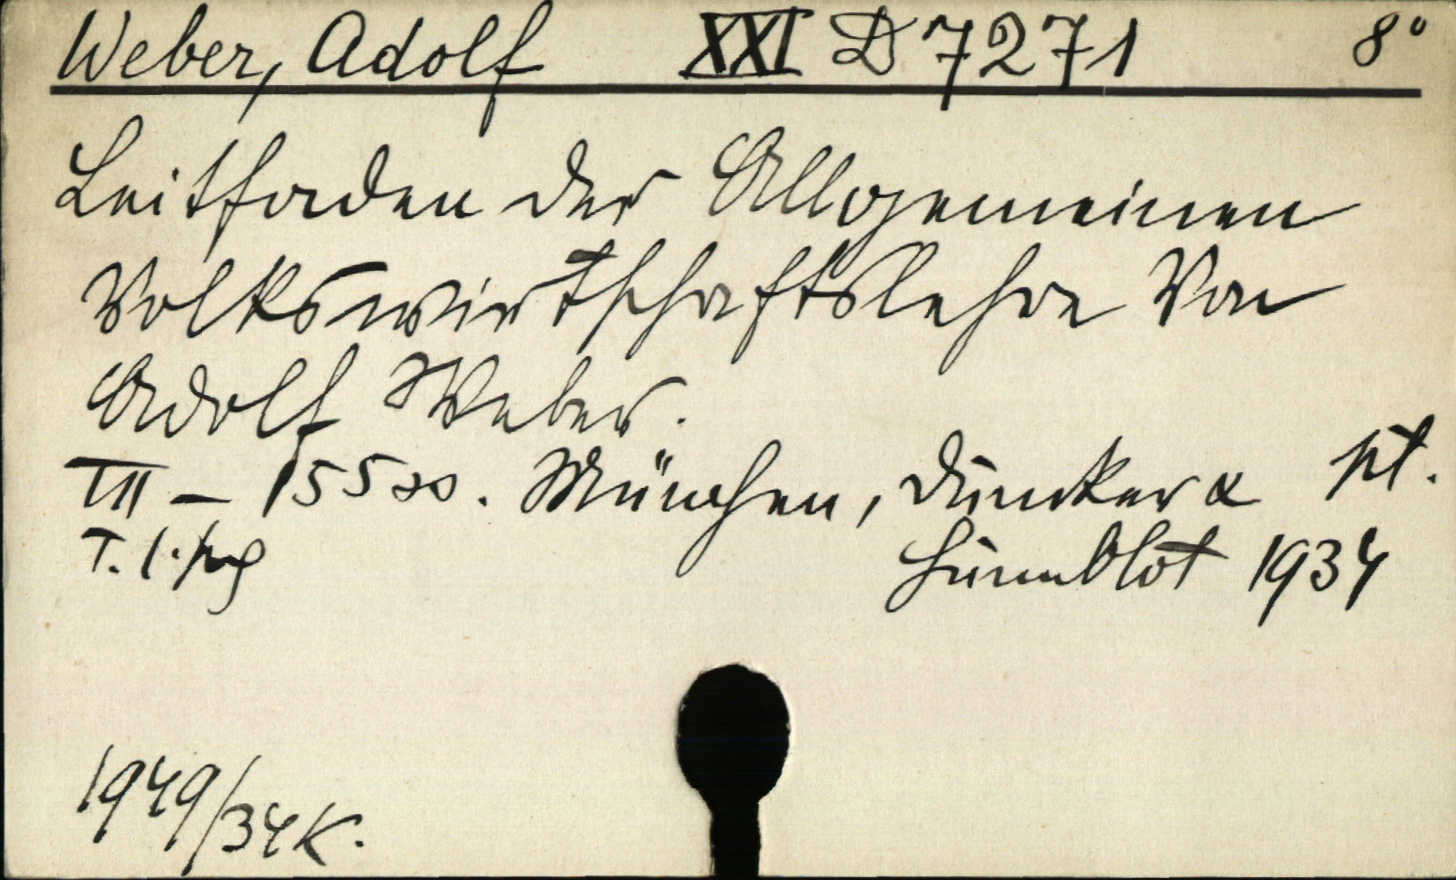 Weber, Adolf XXI D 7271 8°
Leitfaden der Allgemeinen
Volkswirtschaftslehre Von
Adolf Weber.
III – 155 SS. München, Duncker &
Humblot 1934
1949/34K.